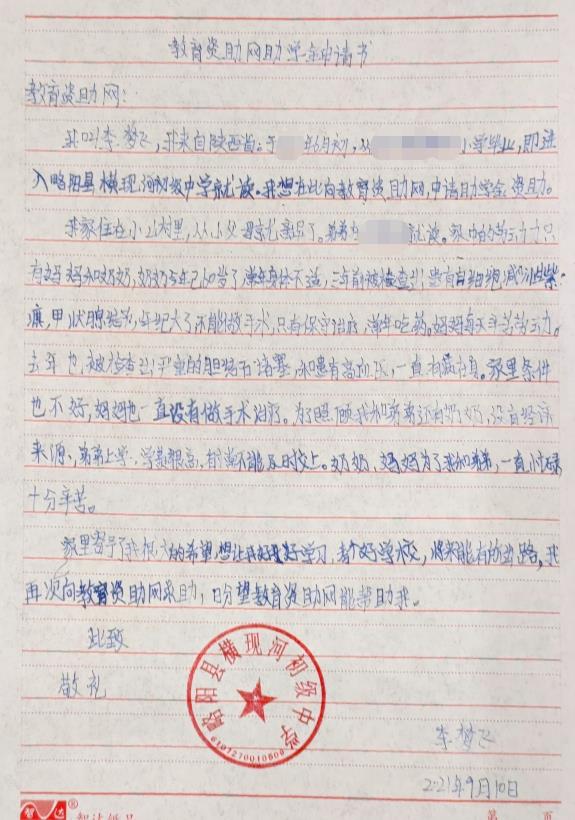 教育资助网助学金申请书
教育资助网:
我叫李梦飞,我来自陕西省;于年6月初,从小学毕业,即进
入略阳县横现河初级中学就读。我想在此向教育资助网,申请助学金资助。
我家住在小山村里,从小父母就离异了。弟弟在就读。家中的劳动力只
有妈妈和奶奶,奶奶今年已60岁了常年身体不适,三年前被检查出患有白细胞减少性紫
癜,甲状腺结节,年纪大了不能做手术,只有保守治疗,常年吃药。妈妈每天辛苦劳动。
去年也被检查出严重的胆结石诸罪,和患有高血压,一直有病在身。家里条件
也不好,妈妈也一直没有做手术治疗。为了照顾我和弟弟还有奶奶,没有经济
来源,弟弟上学,学费很高,有时不能及时交上。奶奶、妈妈为了我和弟弟,一直忙碌
十分辛苦。
家里寄予了我很大的希望,想让我好好学习,考个好学校,将来能有的出路,我
再次向教育资助网求助,盼望教育资助网能帮助我。
此致
敬礼
略阳县横现河初级中学
6107270010608
李梦飞
2021年9月10日
智达
第 页